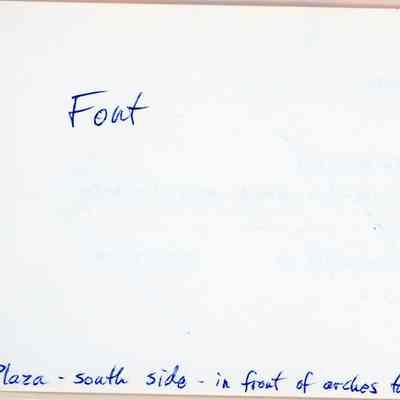 Font
Plaza - south side - in front of arches